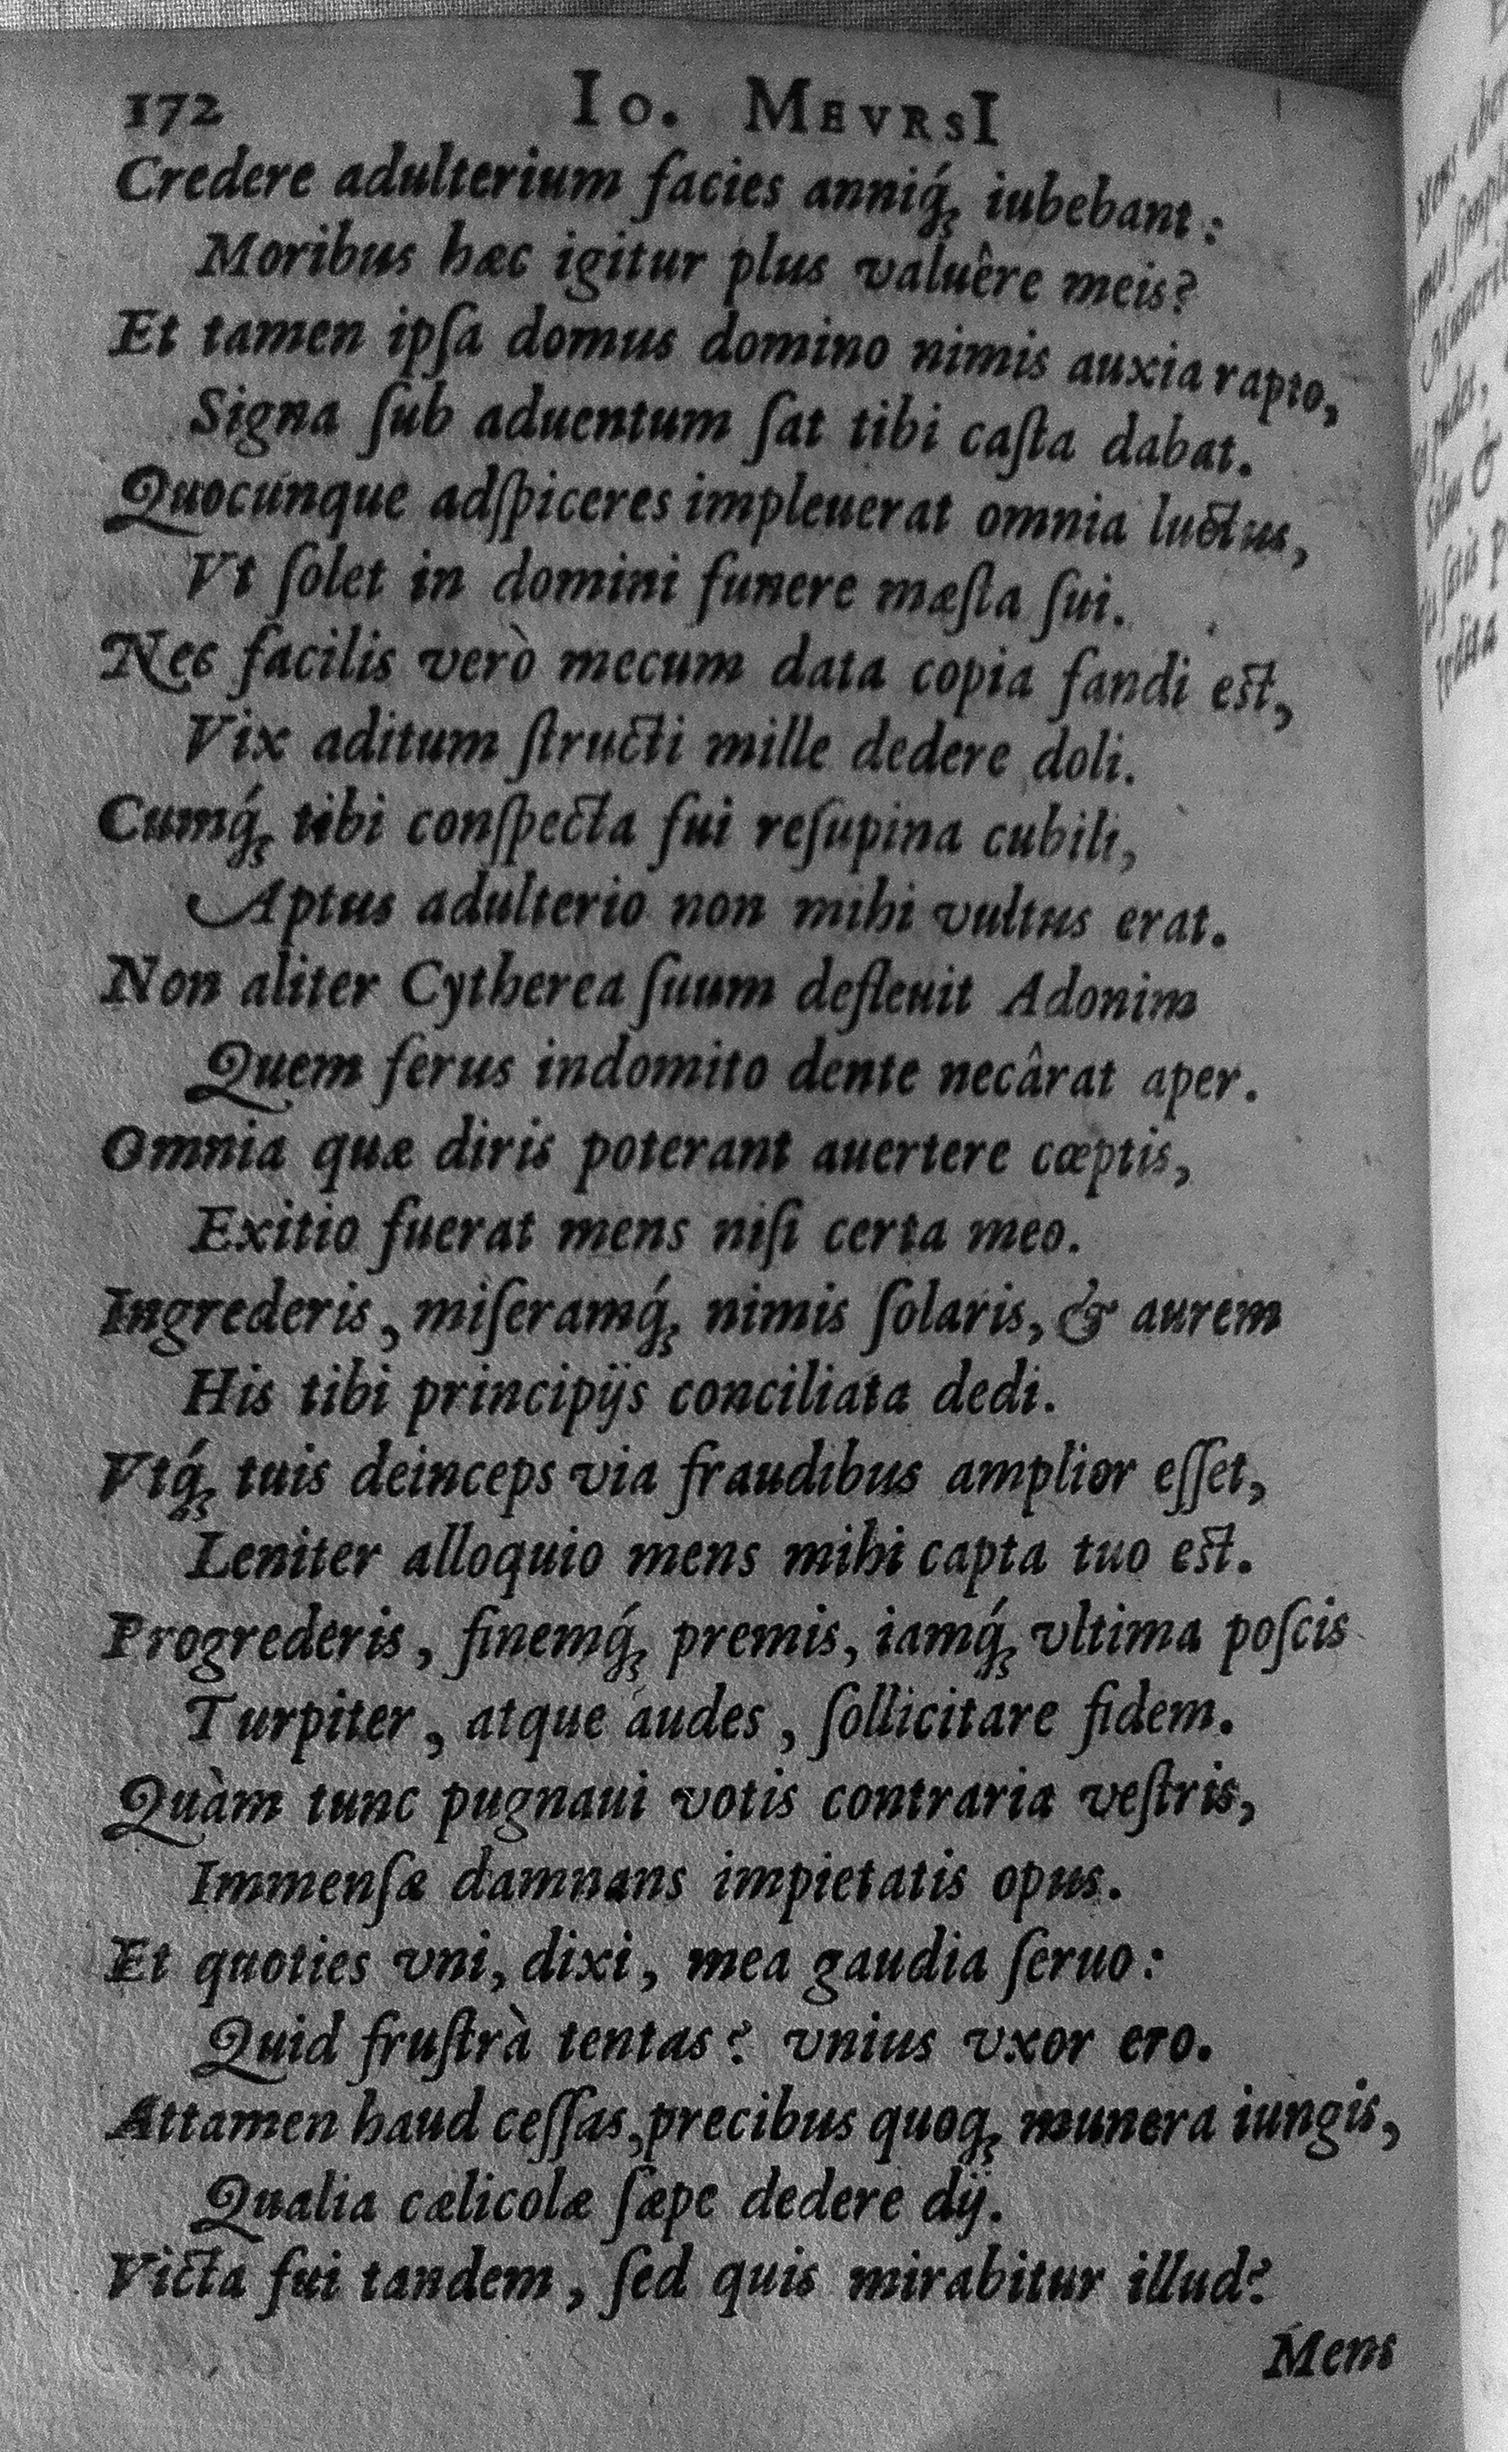 172 Io. MevrsI
Credere adulterium facies anniq́; iubebant:
Moribus hæc igitur plus valuêre meis?
Et tamen ipſa domus domino nimis auxia rapto,
Signa ſub aduentum ſat tibi caſta dabat.
Quocunque adſpiceres impleuerat omnia luctus,
Vt ſolet in domini funere mæſta ſui.
Nec facilis verò mecum data copia fandi est,
Vix aditum ſtructi mille dedere doli.
Cumq́; tibi conſpecta fui reſupina cubili,
Aptus adulterio non mihi vultus erat.
Non aliter Cytherea ſuum defleuit Adonim
Quem ferus indomito dente necârat aper.
Omnia quæ diris poterant auertere cœptis,
Exitio fuerat mens niſi certa meo.
Ingrederis, miſeramq́; nimis ſolaris, & aurem
His tibi principijs conciliata dedi.
Vtq́; tuis deinceps via fraudibus amplior eſſet,
Leniter alloquio mens mihi capta tuo est.
Progrederis, finemq́; premis, iamq́; vltima poſcis
Turpiter, atque audes, ſollicitare fidem.
Quàm tunc pugnaui votis contraria veſtris,
Immenſæ damnans impietatis opus.
Et quoties vni, dixi, mea gaudia ſeruo:
Quid fruſtrà tentas? vnius vxor ero.
Attamen haud ceſſas, precibus quoq; munera iungis,
Qualia cælicolæ ſæpe dedere dij.
Victa fui tandem, ſed quis mirabitur illud?
Mens